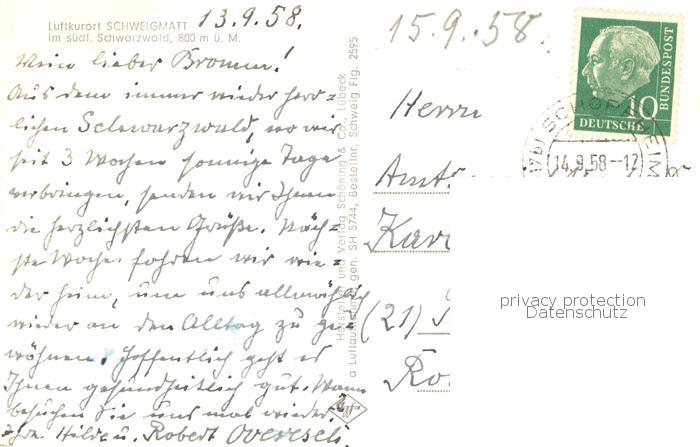 Luftkurort SCHWEIGMATT
im südl. Schwarzwald, 800 m ü. M.
13.9.58.
Mein lieber Bromm!
Aus dem immer wieder herr=
lichen Schwarzwald, wo wir
seit 3 Wochen sonnige Tage
verbringen, senden wir Ihnen
die herzlichsten Grüße. Näch=
ste Woche fahren wir wie=
der heim, um uns allmählich
wieder an den Alltag zu ge=
wöhnen. Hoffentlich geht es
Ihnen gesundheitlich gut. Wann
besuchen Sie uns mal wieder?
Hilde u. Robert
Hersteller und Verlag Schöning & Co., Lübeck
a Luftaufnahme gen. SH 5744, Bestellnr. Schweig Flg. 2595
15.9.58.
Herrn
Amts
(21)
10
DEUTSCHE
BUNDESPOST
(17b) SCHOPFHEIM
14.9.58-17
privacy protection
Datenschutz